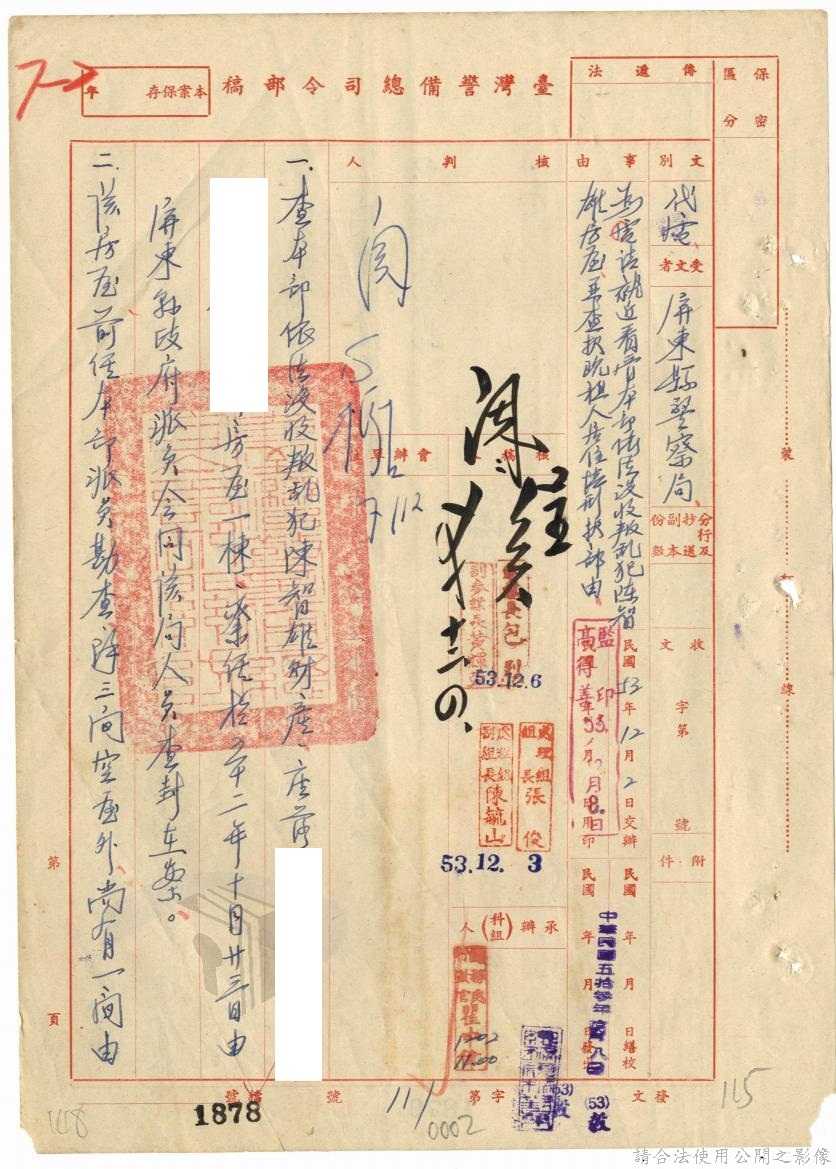 保密
區分
傳遞法
臺灣警備總司令部稿
本案保存 年
文別
代電
受文者
屏東縣警察局
分行及抄送副本份數
收文 字第 號
附件
事由
為電請就近看管本部依法沒收叛亂犯陳智
雄房屋並查報現租人居住情形報部由
民國53年12月2日交辦
民國 年 月 日繕校
監印
高得華
53.12月8.日
月 日用印
民國 年 月 日發出
中華民國五拾參年
發文
(53)
核判人
會辦單位
核稿人
副參謀長黃
53.12.6
處理組組長張俊
處理組副組長陳毓山
53.12.3
承辦(科組)人
1202
1100
一、查本部依法沒收叛亂犯陳智雄財產、座落
房屋一棟、業經於五十二年十月廿三日由
屏東縣政府派員會同該局人員查封在案。
二、該房屋前經本部派員勘查除三間空屋外、尚有一間由
裝
線
第 頁
字第 號
檔號
111
1878
0002
115
148
請合法使用公開之影像